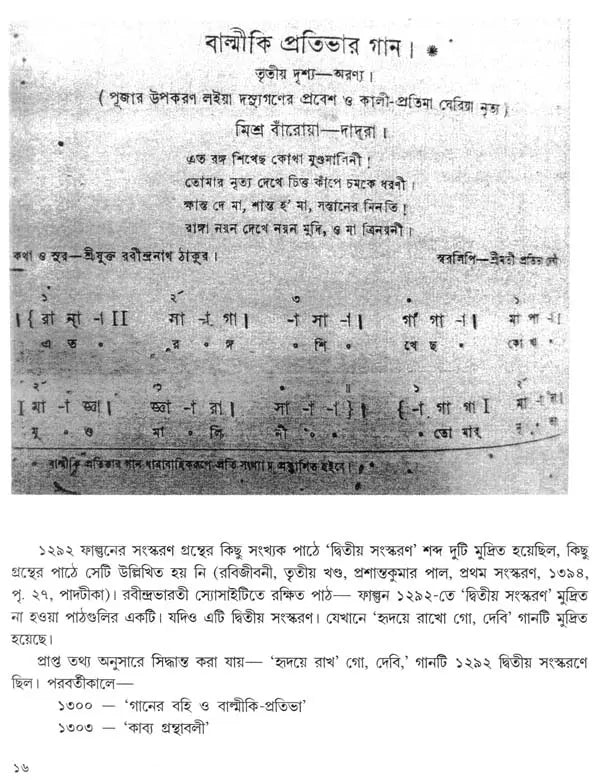 বাল্মীকি প্রতিভার গান। *
তৃতীয় দৃশ্য—অরণ্য।
( পূজার উপকরণ লইয়া দস্যুগণের প্রবেশ ও কালী-প্রতিমা ঘেরিয়া নৃত্য )
মিশ্র বাঁরোয়া—দাদ্‌রা।
এত রঙ্গ শিখেছ কোথা মুণ্ডমালিনী!
তোমার নৃত্য দেখে চিত্ত কাঁপে চমকে ধরণী।
ক্ষান্ত দে মা, শান্ত হ' মা, সন্তানের মিনতি।
রাঙ্গা নয়ন দেখে নয়ন মুদি, ও মা ত্রিনয়নী।
কথা ও সুর—শ্রীযুক্ত রবীন্দ্রনাথ ঠাকুর। স্বরলিপি—শ্রীমতী প্রতিভা দেবী
১ ২ ৩ ১
। { রা না -া II সা -া গা। -া সা -া। গা গা -া। মা পা -া
এ ত ॰ র ॰ ঙ্গ ॰ শি ॰ খে ছ ॰ কো থা
২ ৩ ॥ ১ ২
I মা -া জ্ঞা। জ্ঞা -া রা। সা -া -া }। { -া গা গা I মা -া
মু ॰ ণ্ড মা ॰ লি নী ॰ ॰ ॰ তো মার্
* বাল্মীকি প্রতিভার গান ধারাবাহিকরূপে প্রতি সংখ্যায় প্রকাশিত হইবে।
১২৯২ ফাল্গুনের সংস্করণ গ্রন্থের কিছু সংখ্যক পাঠে ‘দ্বিতীয় সংস্করণ’ শব্দ দুটি মুদ্রিত হয়েছিল, কিছু
গ্রন্থের পাঠে সেটি উল্লিখিত হয় নি (রবিজীবনী, তৃতীয় খণ্ড, প্রশান্তকুমার পাল, প্রথম সংস্করণ, ১৩৯৪,
পৃ. ২৭, পাদটীকা)। রবীন্দ্রভারতী স্যোসাইটিতে রক্ষিত পাঠ— ফাল্গুন ১২৯২-তে ‘দ্বিতীয় সংস্করণ’ মুদ্রিত
না হওয়া পাঠগুলির একটি। যদিও এটি দ্বিতীয় সংস্করণ। যেখানে ‘হৃদয়ে রাখো গো, দেবি’ গানটি মুদ্রিত
হয়েছে।
প্রাপ্ত তথ্য অনুসারে সিদ্ধান্ত করা যায়— ‘হৃদয়ে রাখ’ গো, দেবি,’ গানটি ১২৯২ দ্বিতীয় সংস্করণে
ছিল। পরবর্তীকালে—
১৩০০ — ‘গানের বহি ও বাল্মীকি-প্রতিভা’
১৩০৩ — ‘কাব্য গ্রন্থাবলী’
১৬